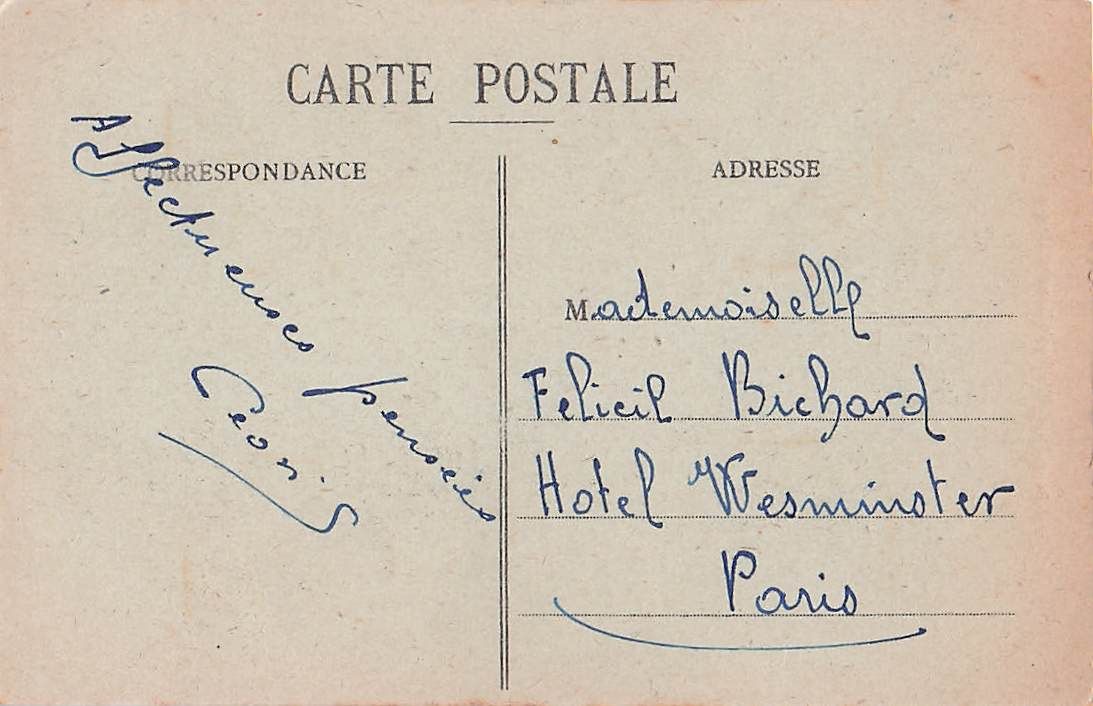 CARTE POSTALE
CORRESPONDANCE
Affectueuses pensées
ADRESSE
Mademoiselle
Felicil Bichard
Hotel Wesminster
Paris